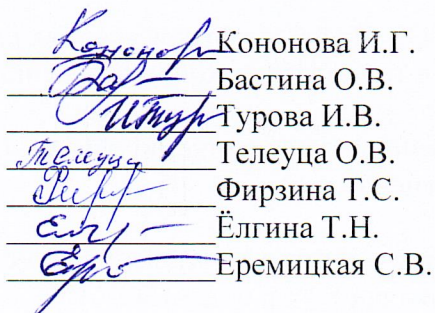 Кононова И.Г.
Бастина О.В.
Турова И.В.
Телеуца Телеуца О.В.
Фирзина Т.С.
Ёлгина Т.Н.
Еремицкая С.В.